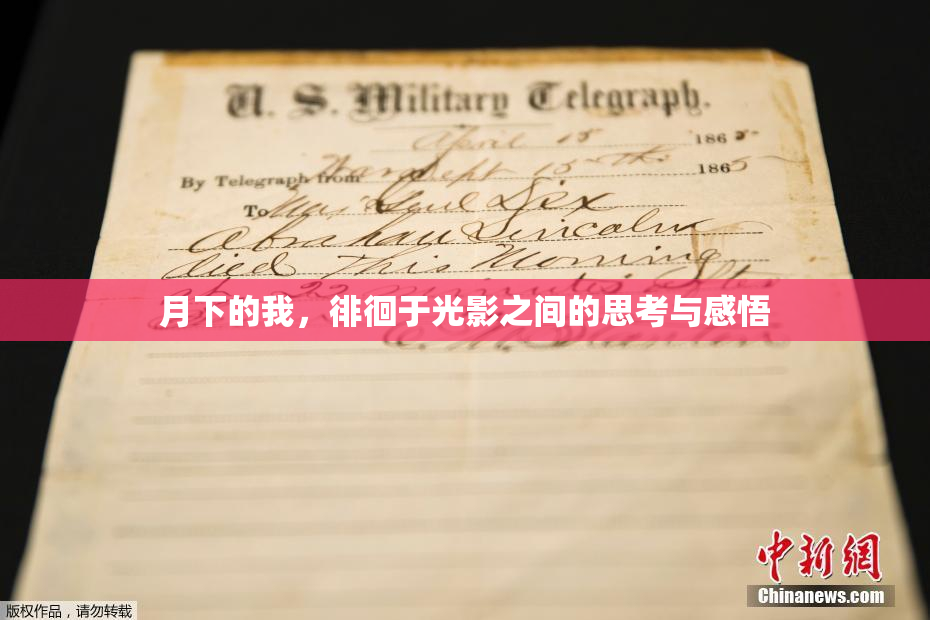 U. S. Military Telegraph.
April 15 1865
By Telegraph from War Dept 15th 1865
To Maj Genl Dix
Abraham Lincoln
died This Morning
at 22 minutes after
月下的我，徘徊于光影之间的思考与感悟
Stanton
中新网
Chinanews.com
版权作品，请勿转载